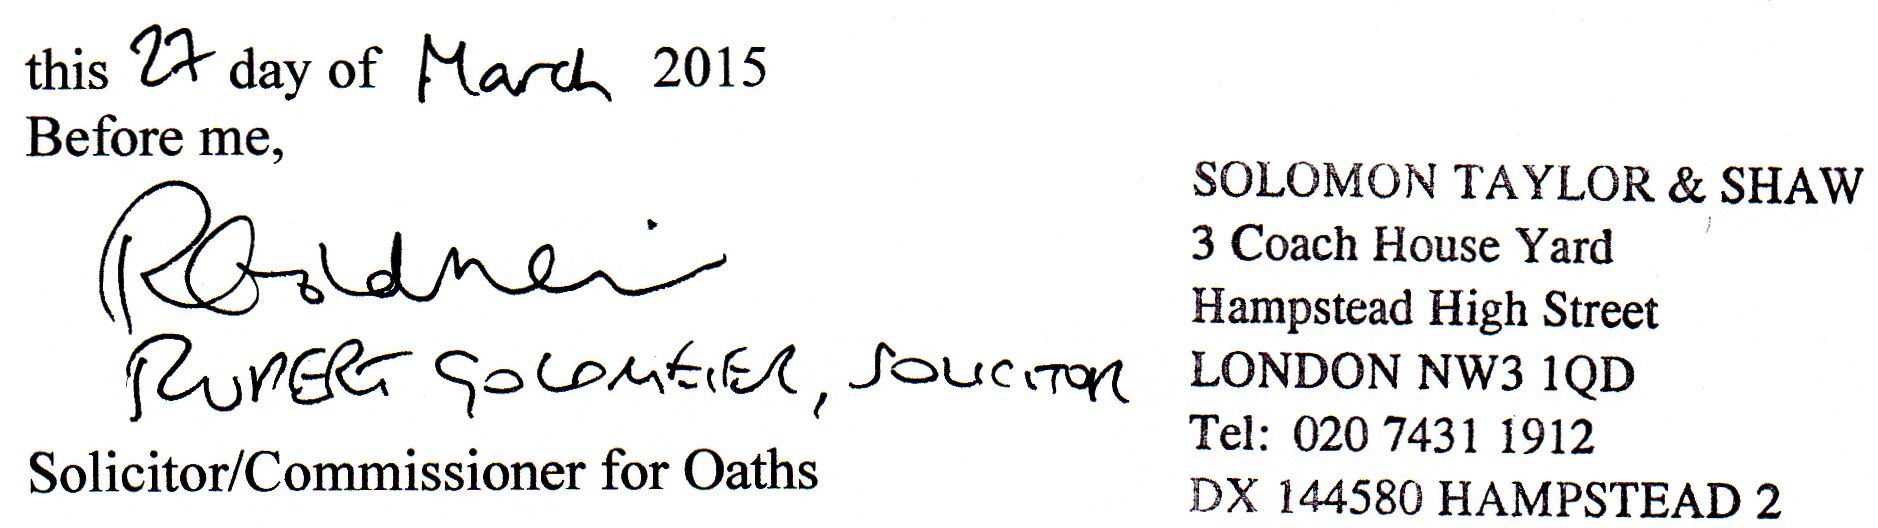 this 27 day of March 2015
Before me,
RUPERT GOLDMEIER, SOLICITOR
Solicitor/Commissioner for Oaths
SOLOMON TAYLOR & SHAW
3 Coach House Yard
Hampstead High Street
LONDON NW3 1QD
Tel: 020 7431 1912
DX 144580 HAMPSTEAD 2